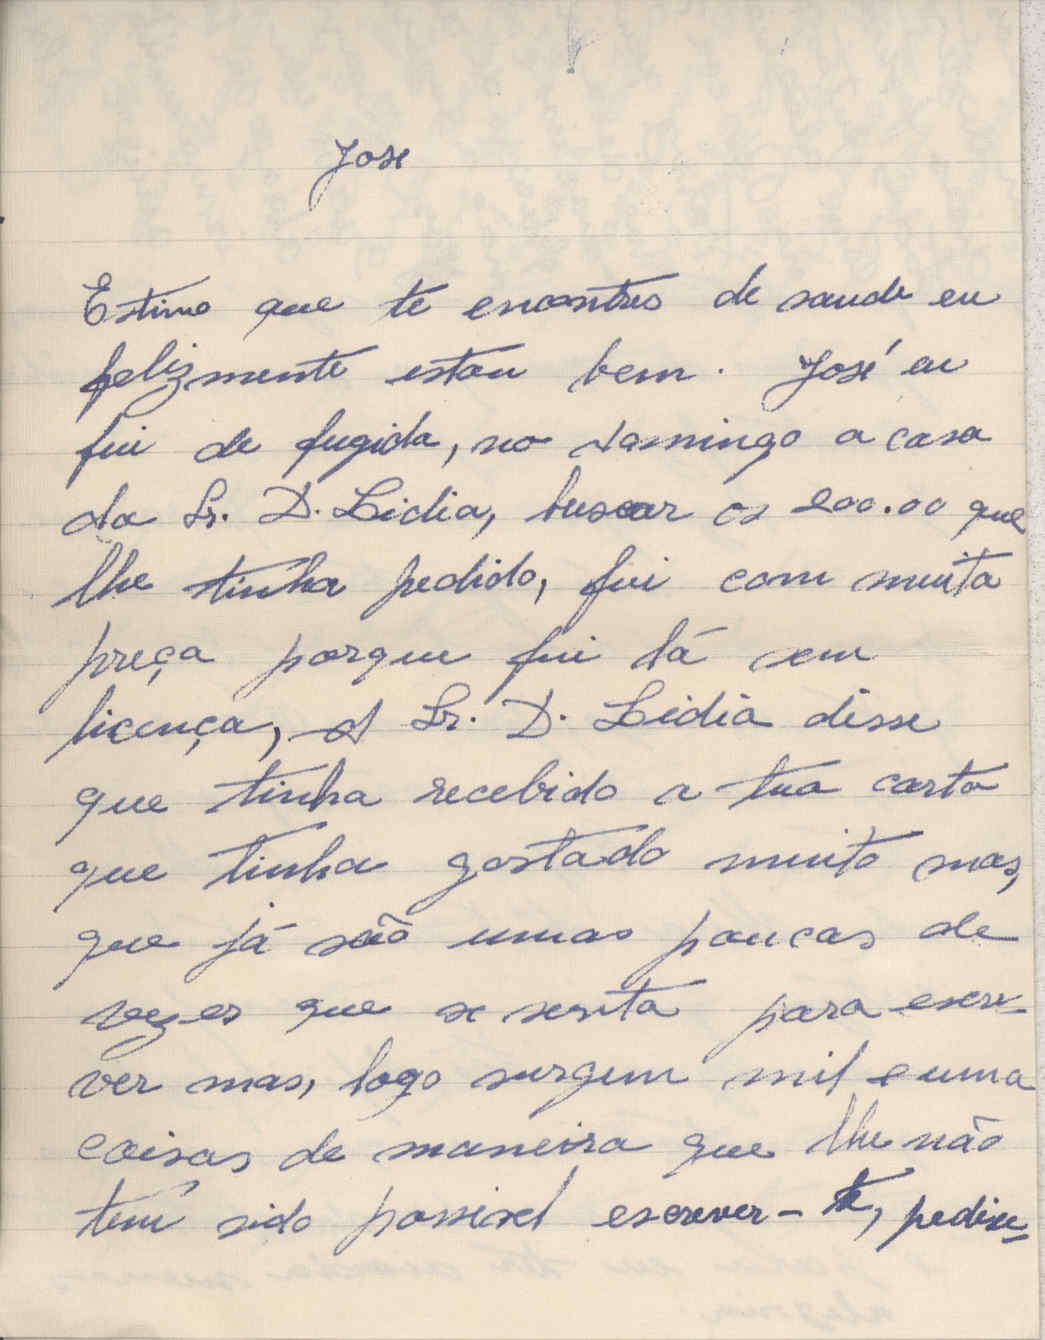 Jose
Estimo que te encontres de saude eu
felizmente estou bem. José eu
fui de fugida, no domingo a casa
da Sr. D. Lidia, buscar os 200.00 que
lhe tinha pedido, fui com muita
preça porque fui lá sem
licença, A Sr. D. Lidia disse
que tinha recebido a tua carta
que tinha gostado muito mas,
que já são umas poucas de
vezes que se senta para escre-
ver mas, logo surgem mil e uma
coisas de maneira que lhe não
tem sido possivel escrever-te, pediu-